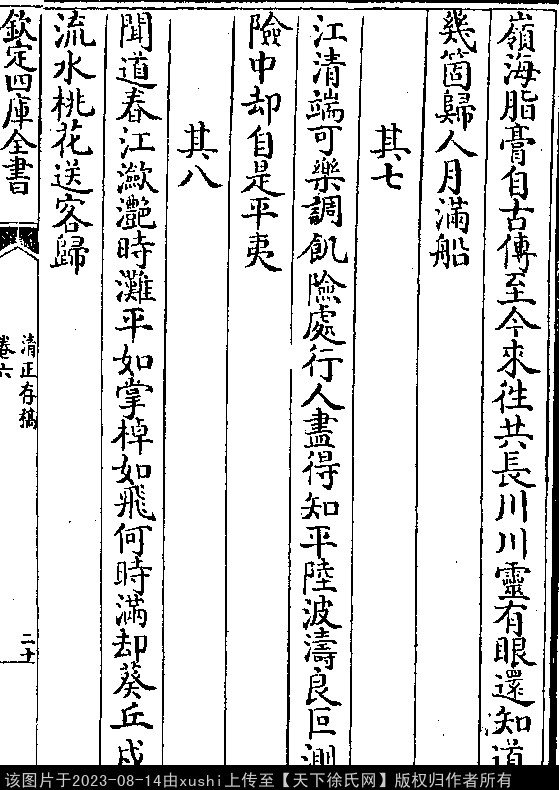 嶺海脂膏自古傳至今來徃共長川川靈有眼還知道
幾箇歸人月滿船
其七
江清端可樂調飢險處行人盡得知平陸波濤良叵測
險中却自是平夷
其八
聞道春江瀲灧時灘平如掌棹如飛何時滿却葵丘戍
流水桃花送客歸
欽定四庫全書
清正存稿
卷六
二十
该图片于2023-08-14由xushi上传至【天下徐氏网】版权归作者所有